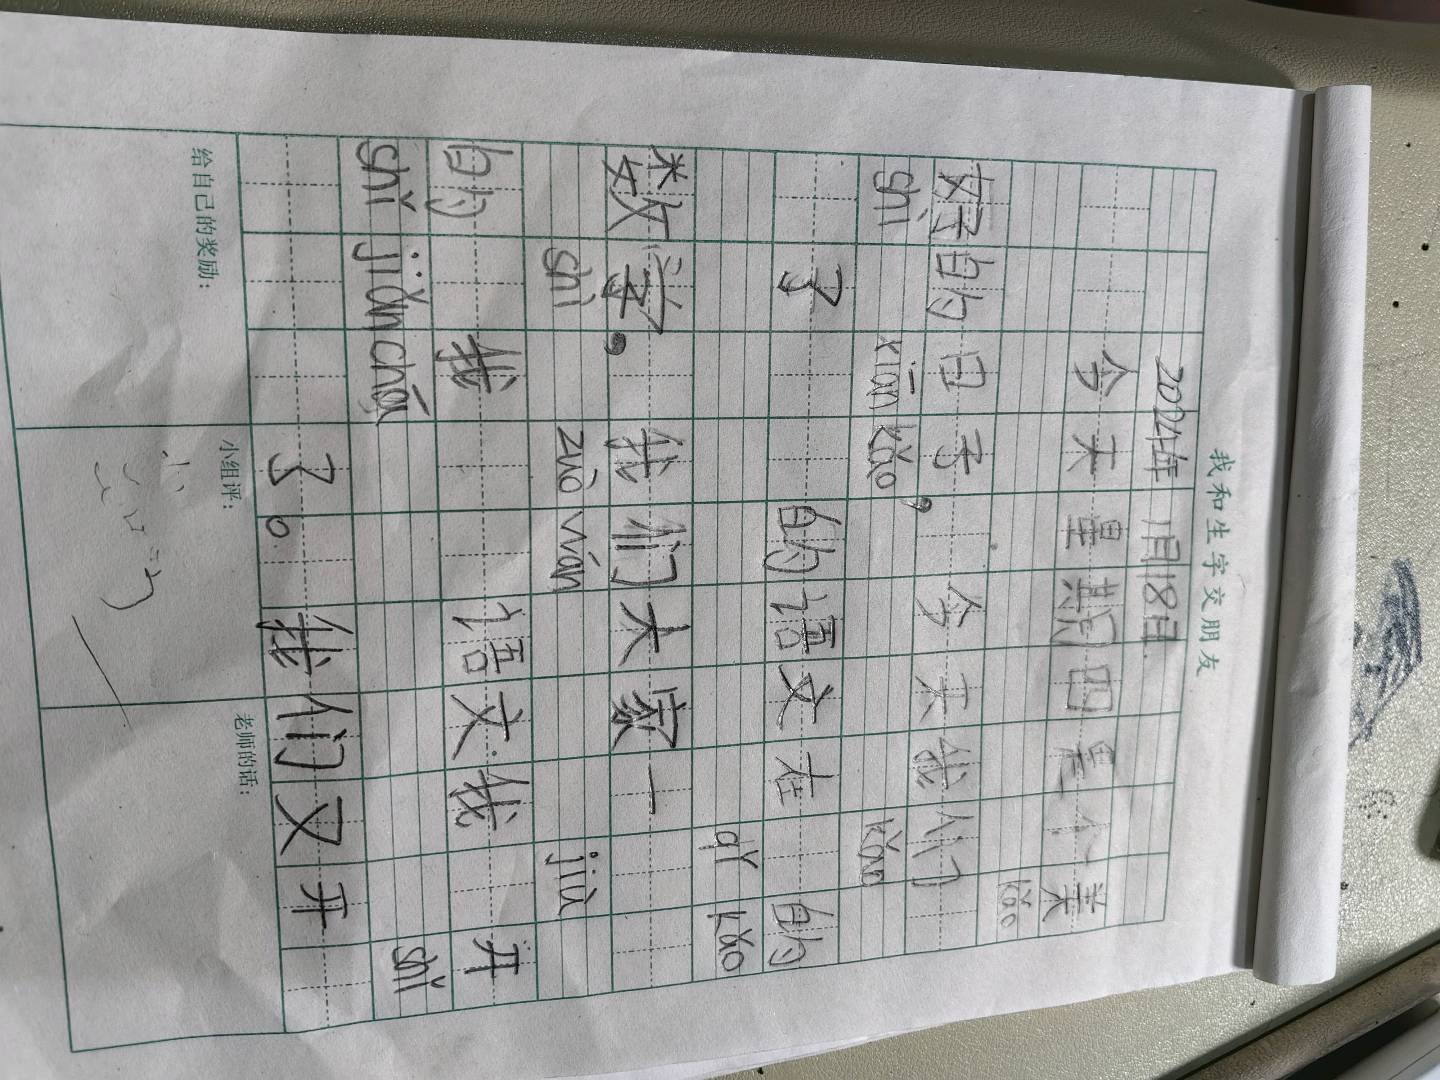 我和生字交朋友
2024年1月18日.
今天星期四是个美
kǎo
好的日子，今天我们
shì xiān kǎo kǎo
了的语文在的
qǐ kǎo
数学，我们大家一
shì zuò wán jiù
的我语文.我开
shǐ jiǎn chá shǐ
了。我们又开
给自己的奖励：
小组评：
老师的话：